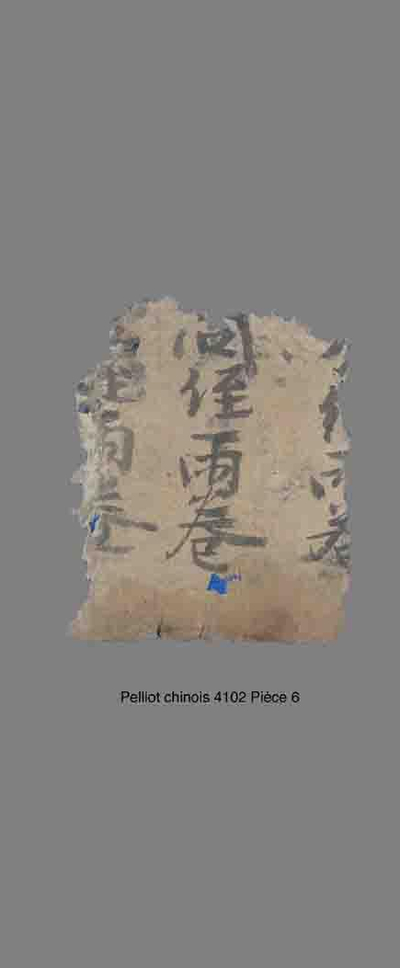 經兩卷
問經兩卷
經兩卷
Pelliot chinois 4102 Pièce 6